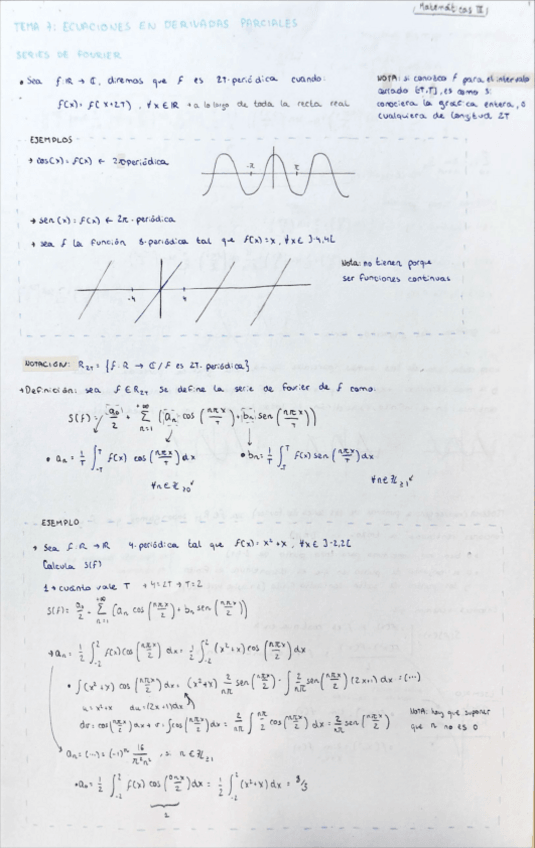 Matemáticas III
TEMA 7: ECUACIONES EN DERIVADAS PARCIALES
SERIES DE FOURIER
• Sea f: ℝ → ℂ, diremos que f es 2T-periódica cuando:
f(x) = f(x+2T), ∀x∈ℝ → a lo largo de toda la recta real
NOTA: si conozco f para el intervalo
cerrado [-T,T], es como si
conociera la gráfica entera, o
cualquiera de longitud 2T
EJEMPLOS
→ cos(x) = f(x) ← 2π periódica
-π π
→ sen(x) = f(x) ← 2π-periódica
→ sea f la función 8-periódica tal que f(x)=x, ∀x∈ ]-4,4[
Nota: no tienen porque
ser funciones continuas
-4 4
NOTACIÓN: R₂T = {f: ℝ → ℂ / f es 2T-periódica}
→ Definición: sea f∈R₂T se define la serie de fourier de f como:
S(f) = a₀/2 + Σ n=1 +∞ (aₙ cos(nπx/T) + bₙ sen(nπx/T))
• aₙ = 1/T ∫₋T^T f(x) cos(nπx/T) dx • bₙ = 1/T ∫₋T^T f(x) sen(nπx/T) dx
∀n∈ℤ≥0 ∀n∈ℤ≥1
EJEMPLO
→ Sea f: ℝ → ℝ 4-periódica tal que f(x) = x²+x, ∀x∈ ]-2,2[
Calcula S(f)
1 → cuánto vale T → 4=2T → T=2
S(f) = a₀/2 + Σ n=1 +∞ (aₙ cos(nπx/2) + bₙ sen(nπx/2))
→ aₙ = 1/2 ∫₋₂² f(x) cos(nπx/2) dx = 1/2 ∫₋₂² (x²+x) cos(nπx/2) dx
• ∫(x²+x) cos(nπx/2) dx = (x²+x) 2/nπ sen(nπx/2) - ∫ 2/nπ sen(nπx/2) (2x+1) dx = (...)
u = x²+x du = (2x+1)dx
dv = cos(nπx/2) dx → v = ∫cos(nπx/2) dx = 2/nπ ∫ nπ/2 cos(nπx/2) dx = 2/nπ sen(nπx/2)
NOTA: hay que suponer
que n no es 0
aₙ = (...) = (-1)ⁿ 16/π²n², si n∈ℤ≥1
• a₀ = 1/2 ∫₋₂² f(x) cos(0πx/2) dx = 1/2 ∫₋₂² (x²+x) dx = 8/3